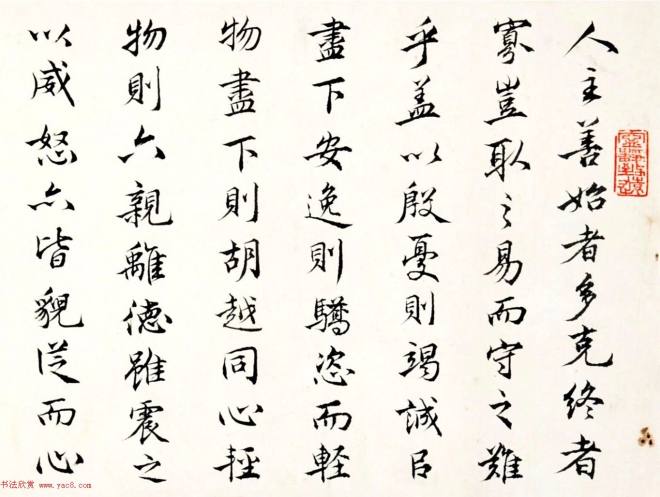 人主善始者多克終者
寡豈取之易而守之難
乎蓋以殷憂則竭誠㠯
盡下安逸則驕恣而輕
物盡下則胡越同心輕
物則六親離德雖震之
以威怒亦皆貌從而心
书法欣赏 www.yac8.com